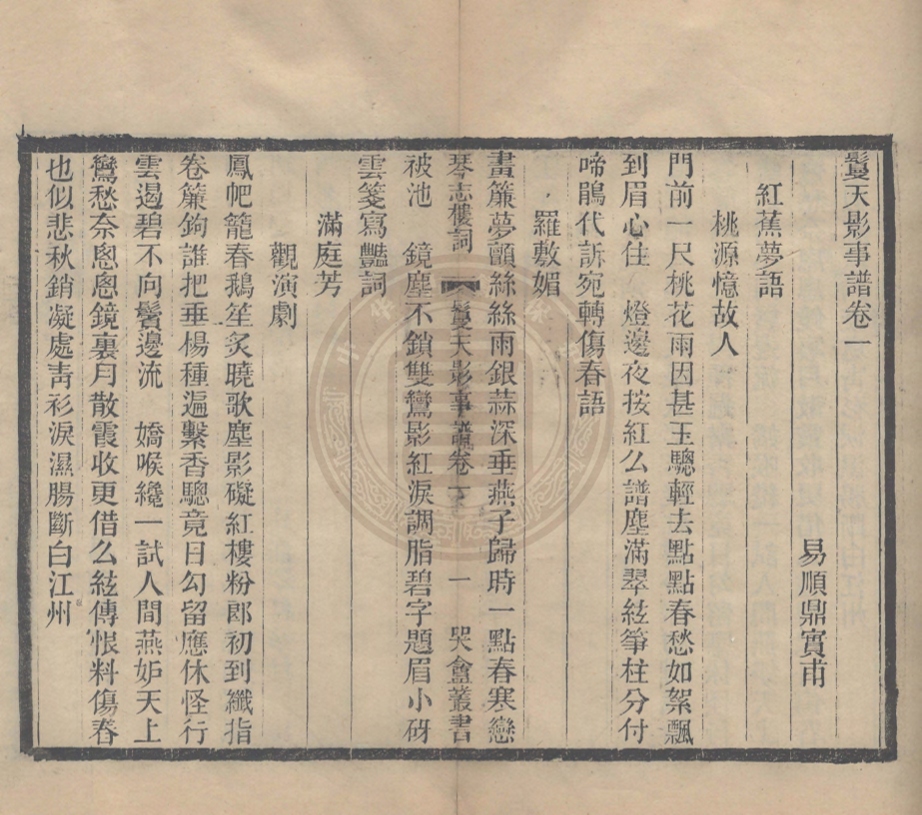 鬘天影事譜卷一
易順鼎實甫
紅蕉夢語
桃源憶故人
門前一尺桃花雨因甚玉驄輕去點點春愁如絮飄
到眉心住　燈邊夜按紅么譜塵滿翠絃箏柱分付
啼鵑代訴宛轉傷春語
羅敷媚
畫簾夢顫絲絲雨銀蒜深垂燕子歸時一點春寒戀
琴志樓詞　鬘天影事譜卷一　一　哭盦叢書
被池　鏡塵不鎖雙鸞影紅淚調脂碧字題眉小砑
雲箋寫豔詞
滿庭芳
觀演劇
鳳帊籠春鵝笙炙曉歌塵影礙紅樓粉郎初到纖指
卷簾鉤誰把垂楊種遍繫香驄竟日勾留應休怪行
雲遏碧不向鬢邊流　嬌喉纔一試人間燕妒天上
鸞愁奈悤悤鏡裏月散霞收更借么絃傳恨料傷春
也似悲秋銷凝處靑衫淚濕腸斷白江州